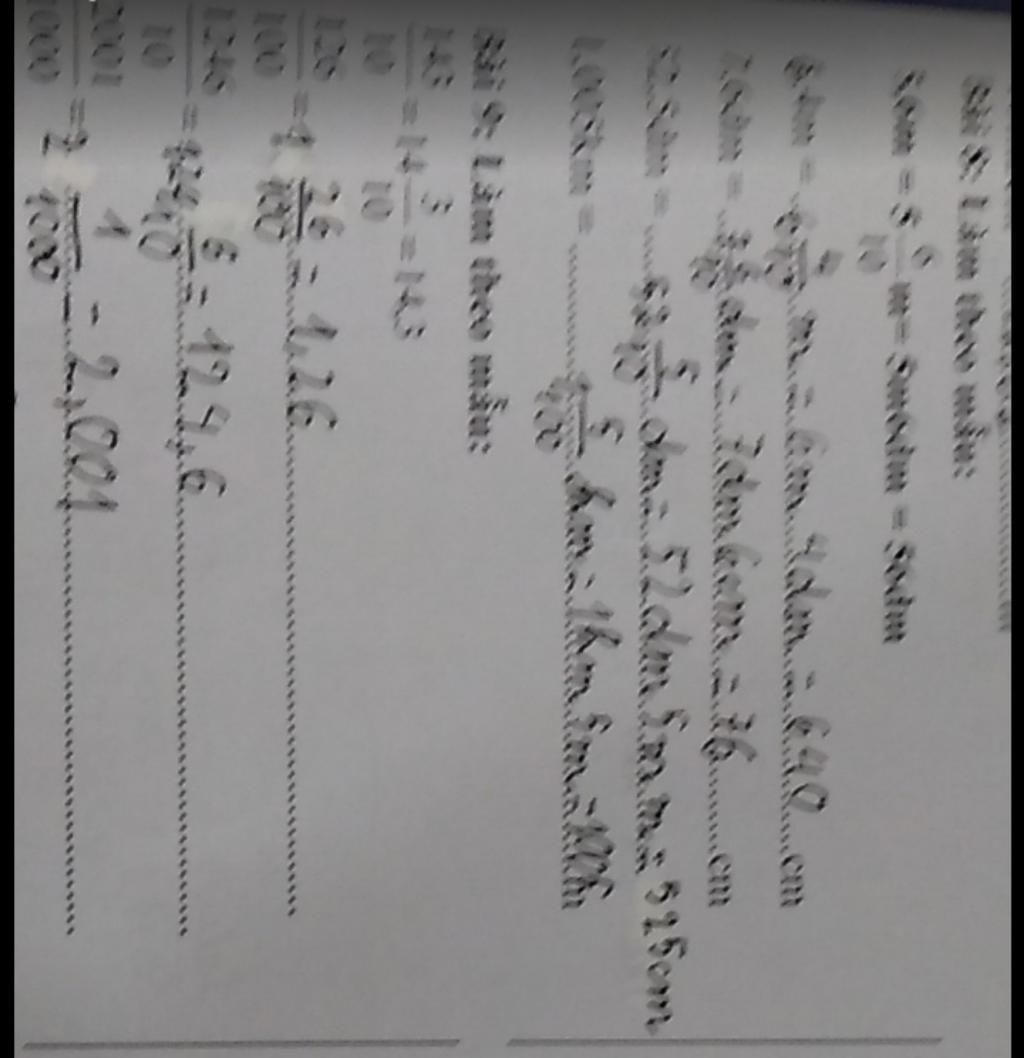 Bài 8: Làm theo mẫu:
5,6m = 5 6/10 m = 5m6dm = 56dm
6,4m = 6 4/10 m = 6m 4dm = 640 cm
7,6dm = 7 6/10 dm = 7dm 6cm = 76 cm
52,5dm = 52 5/10 dm = 52dm 5mm = 525cm
1,005km = km = 1km 5m =
Bài 9: Làm theo mẫu:
143/10 = 14 3/10 = 14,3
126/100 = 1 26/100 = 1,26
1246/10 = 124 6/10 = 124,6
2001/1000 = 2 1/1000 = 2,001